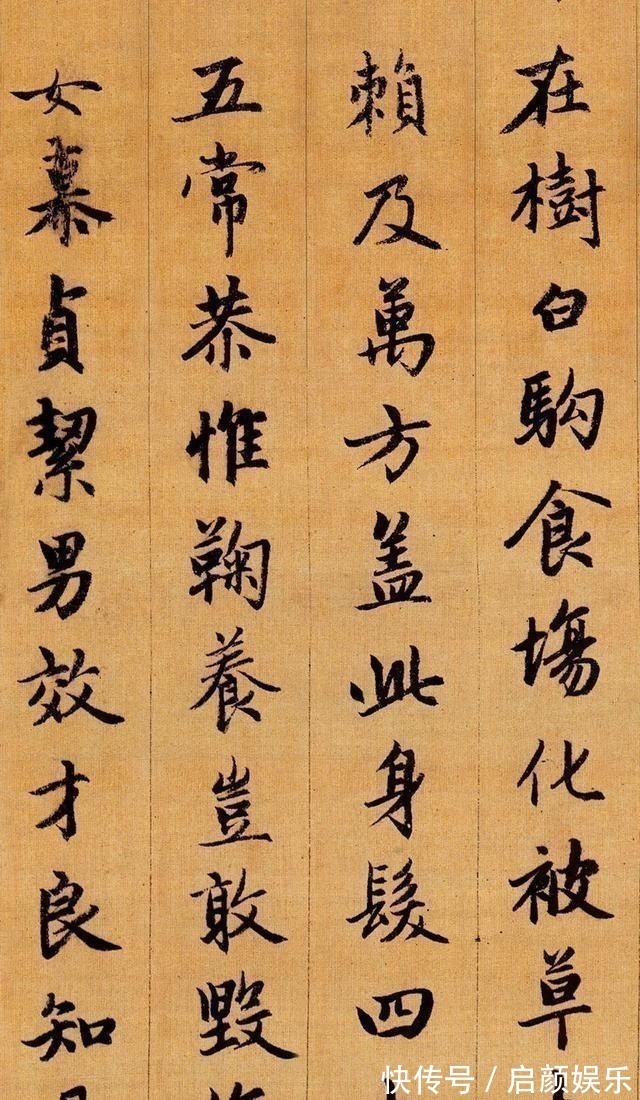 在樹白駒食場化被草
賴及萬方盖此身髮四
五常恭惟鞠養豈敢毀
女慕貞絜男效才良知
快传号/启颜娱乐